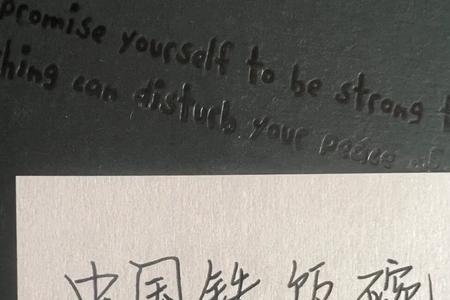 promise yourself to be strong t
hing can disturb your peace of
中国铁饭碗